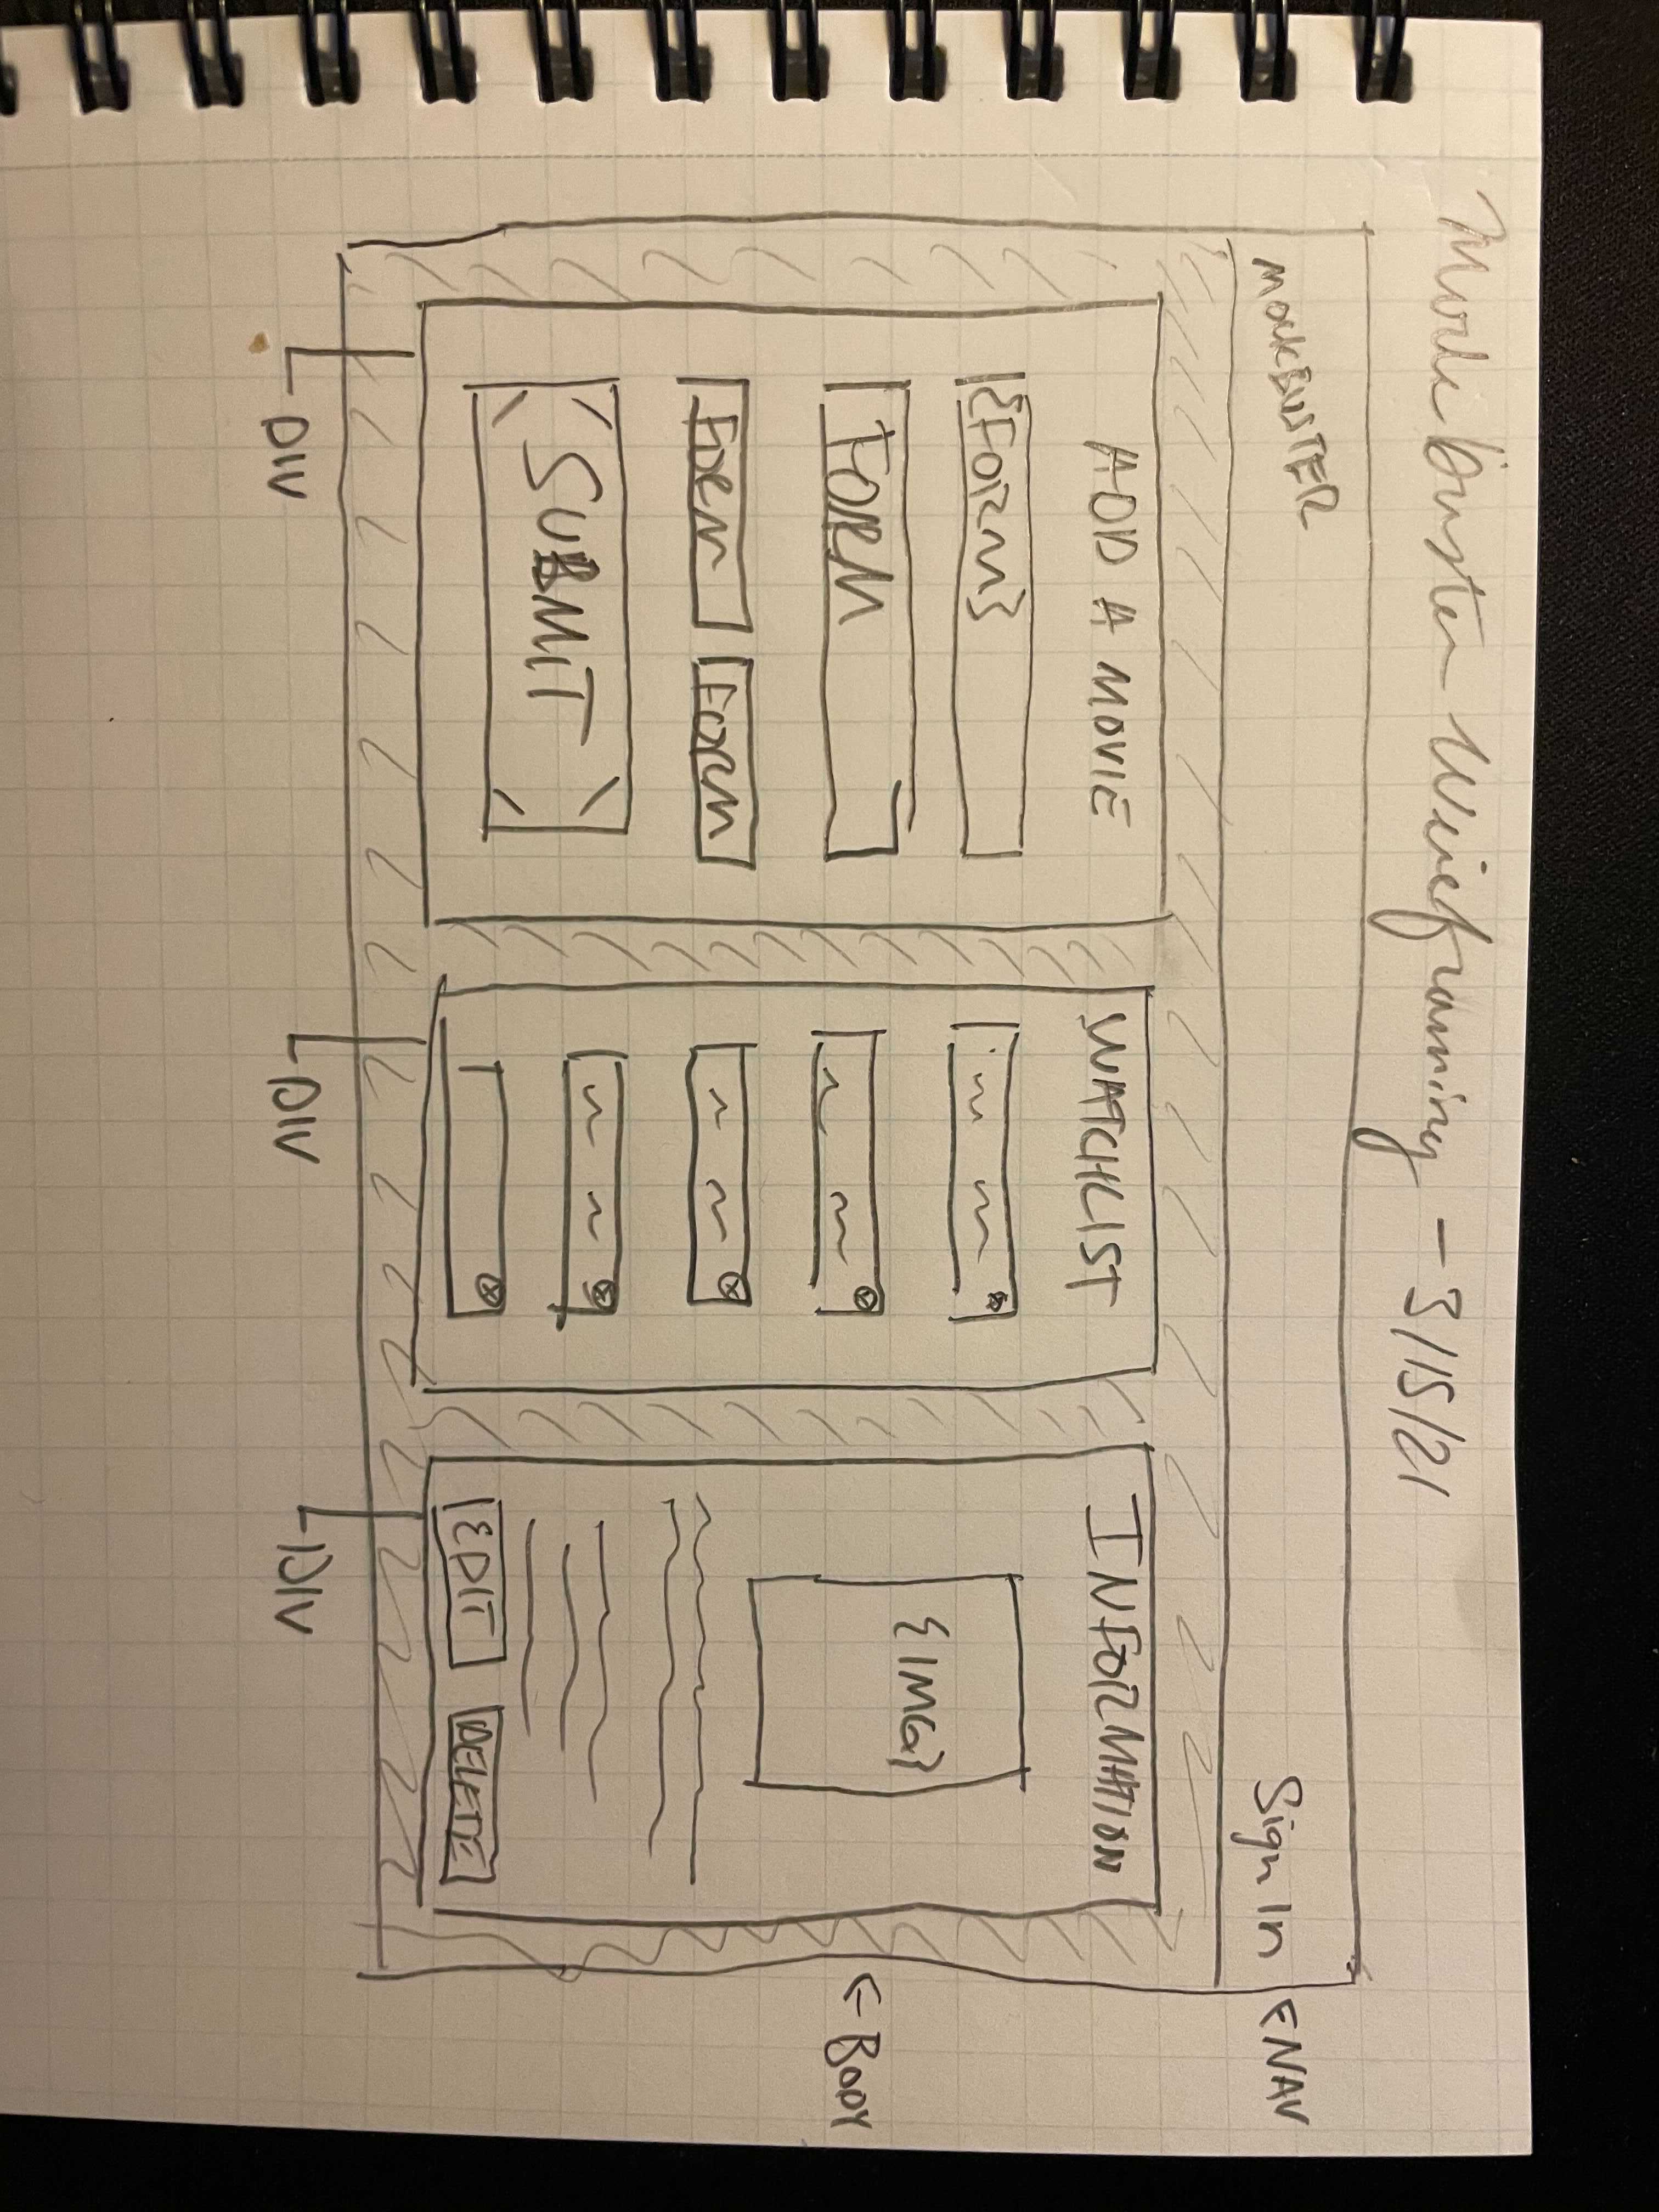 Mockbuster Wireframing - 3/15/21
MOCKBUSTER
Sign In
< NAV
ADD A MOVIE
{FORM}
FORM
FORM FORM
SUBMIT
WATCHLIST
INFORMATION
{IMG}
EDIT DELETE
<- BODY
DIV
DIV
DIV